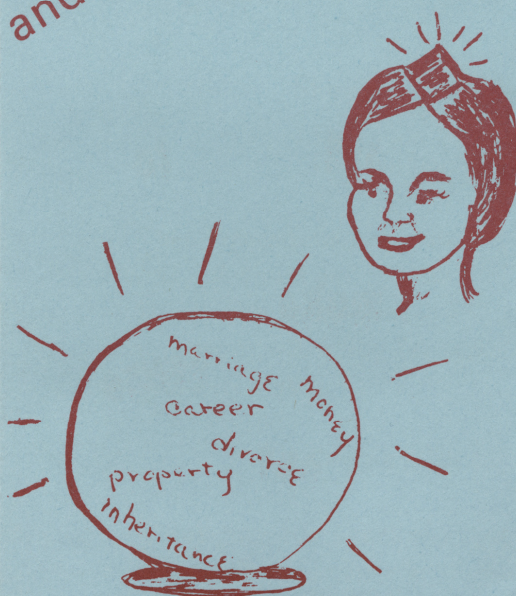 and
marriage
money
career
divorce
property
inheritance